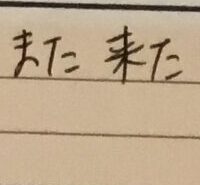 また 来た